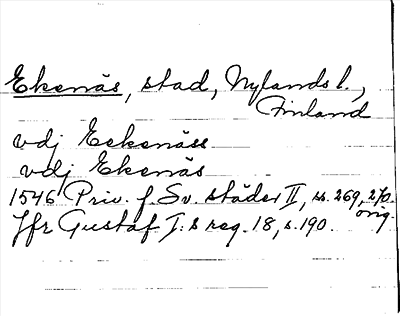 Ekenäs, stad, Nylands l.,
Finland
vdj Eekenäss
vdj Ekenäs
1546 Priv. f. Sv. städer II, s. 269, 270.
orig.
Jfr Gustaf I:s reg. 18, s. 190.